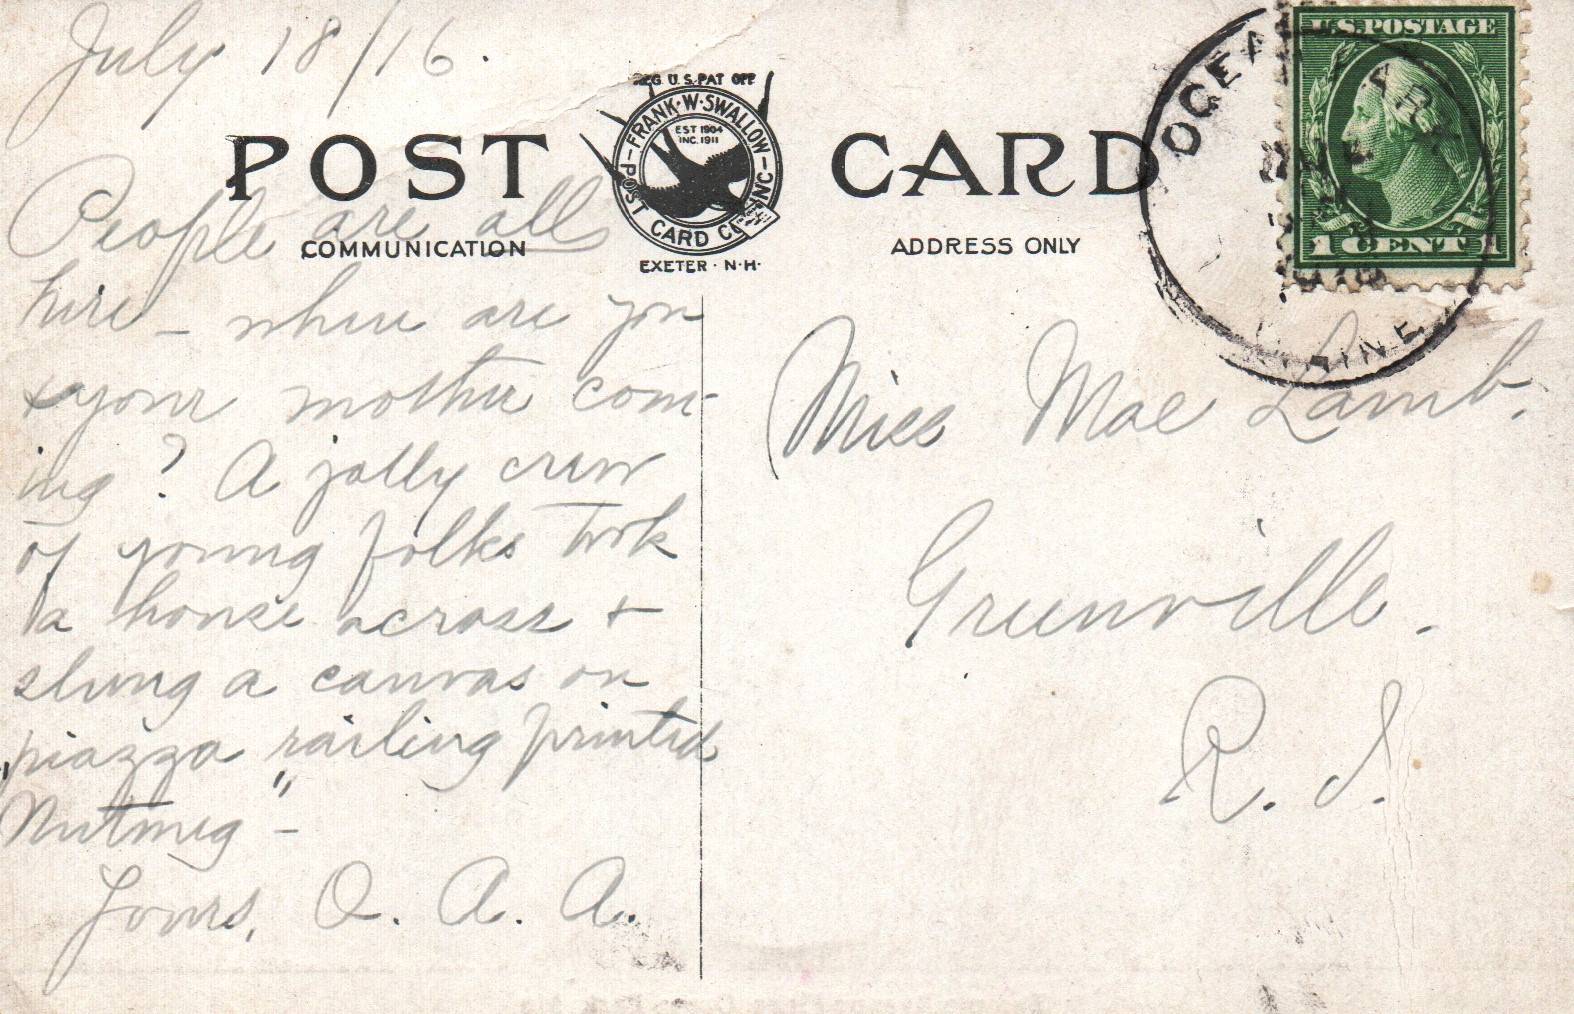 July 18/16.
REG U.S. PAT OFF
FRANK·W·SWALLOW
EST 1904
INC. 1911
POST CARD CO INC
EXETER · N·H·
POST CARD
COMMUNICATION
ADDRESS ONLY
U.S. POSTAGE
1 CENT 1
OCEAN PARK
MAINE
People are all
here – where are you
& your mother com-
ing? A jolly crew
of young folks took
a house across &
slung a canvas on
piazza railing printed
"Nutmeg" –
Yours, O. A. A.
Miss Mae Lamb.
Greenville.
R. I.